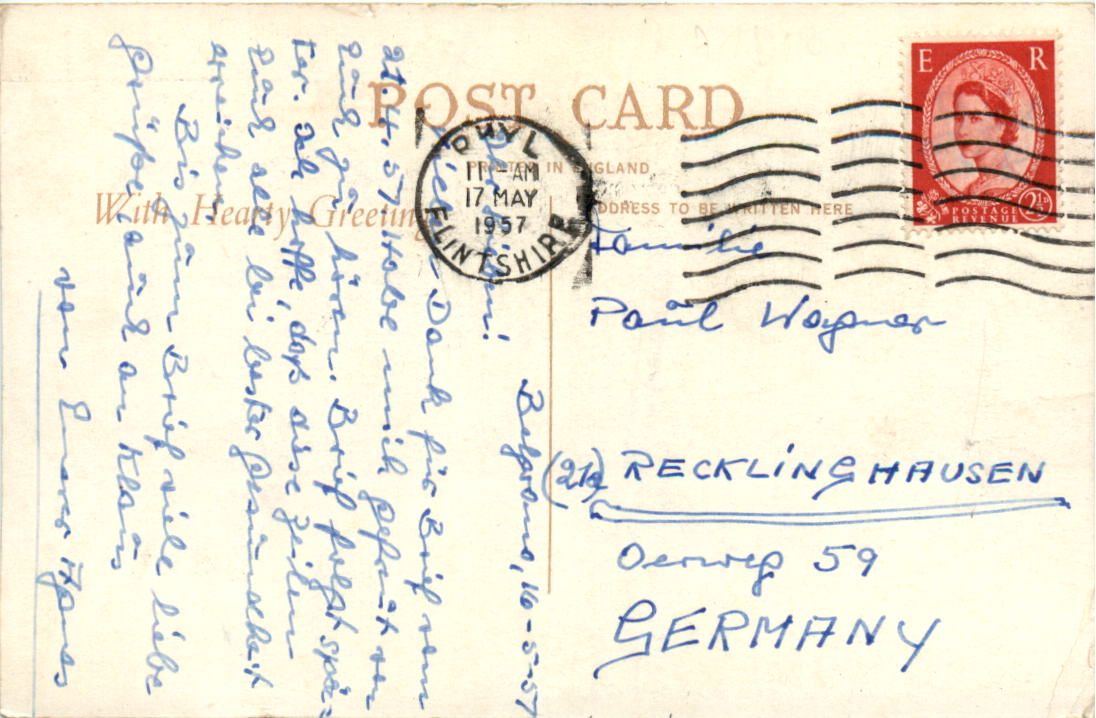 POST CARD
PRINTED IN ENGLAND
With Hearty Greetings
ADDRESS TO BE WRITTEN HERE
E R
POSTAGE REVENUE
2½D
RHYL
11-AM
17 MAY
1957
FLINTSHIRE
Familie
Paul Wagner
(21a) RECKLINGHAUSEN
Oerweg 59
GERMANY
Belgrano, 16-5-57
Vielen Dank für Brief vom
21.4.57. Habe mich gefreut von
Euch zu hören. Brief folgt spä-
ter. Ich hoffe, daß diese Zeilen
Euch alle bei bester Gesundheit
erreichen.
Bis zum Brief viele liebe
Grüße, auch an Klaus
von Eurer